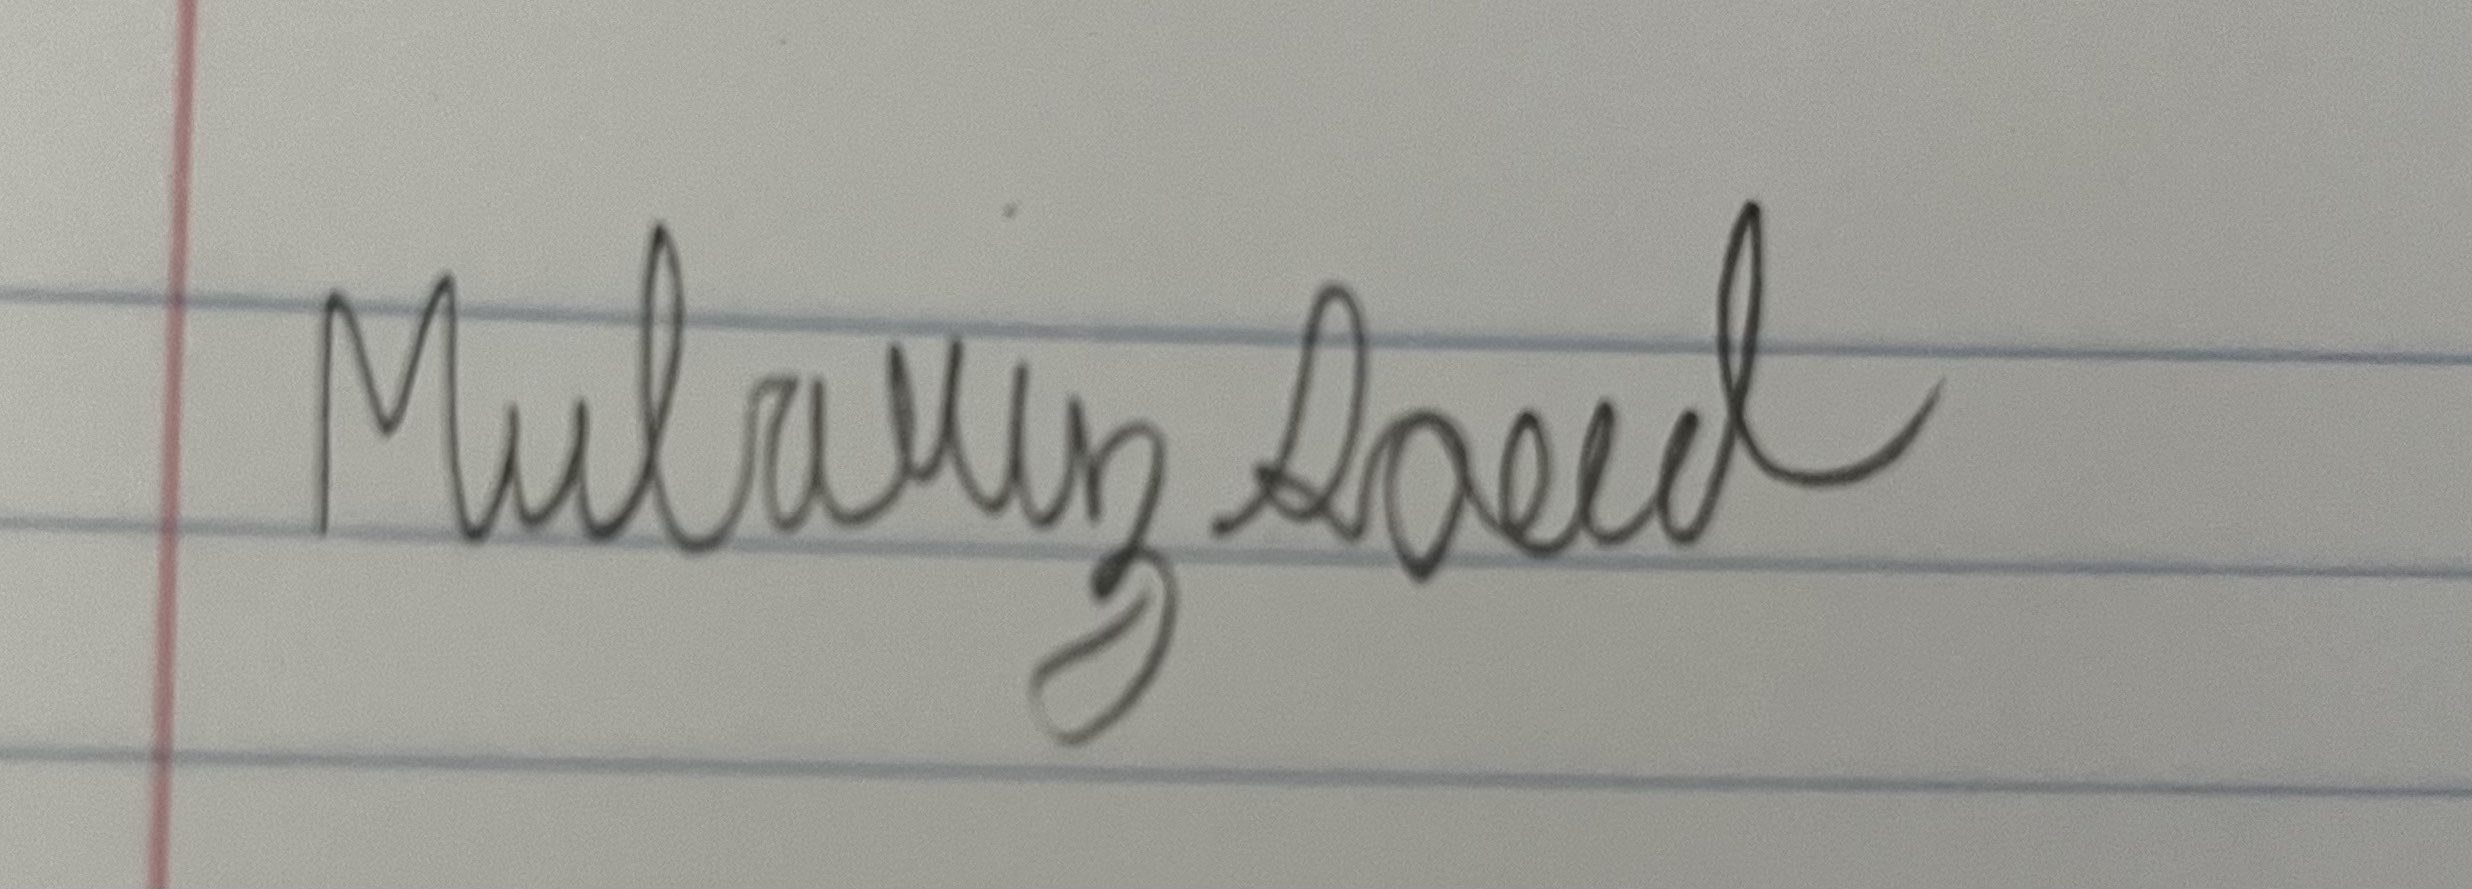 Mubariz Saeed